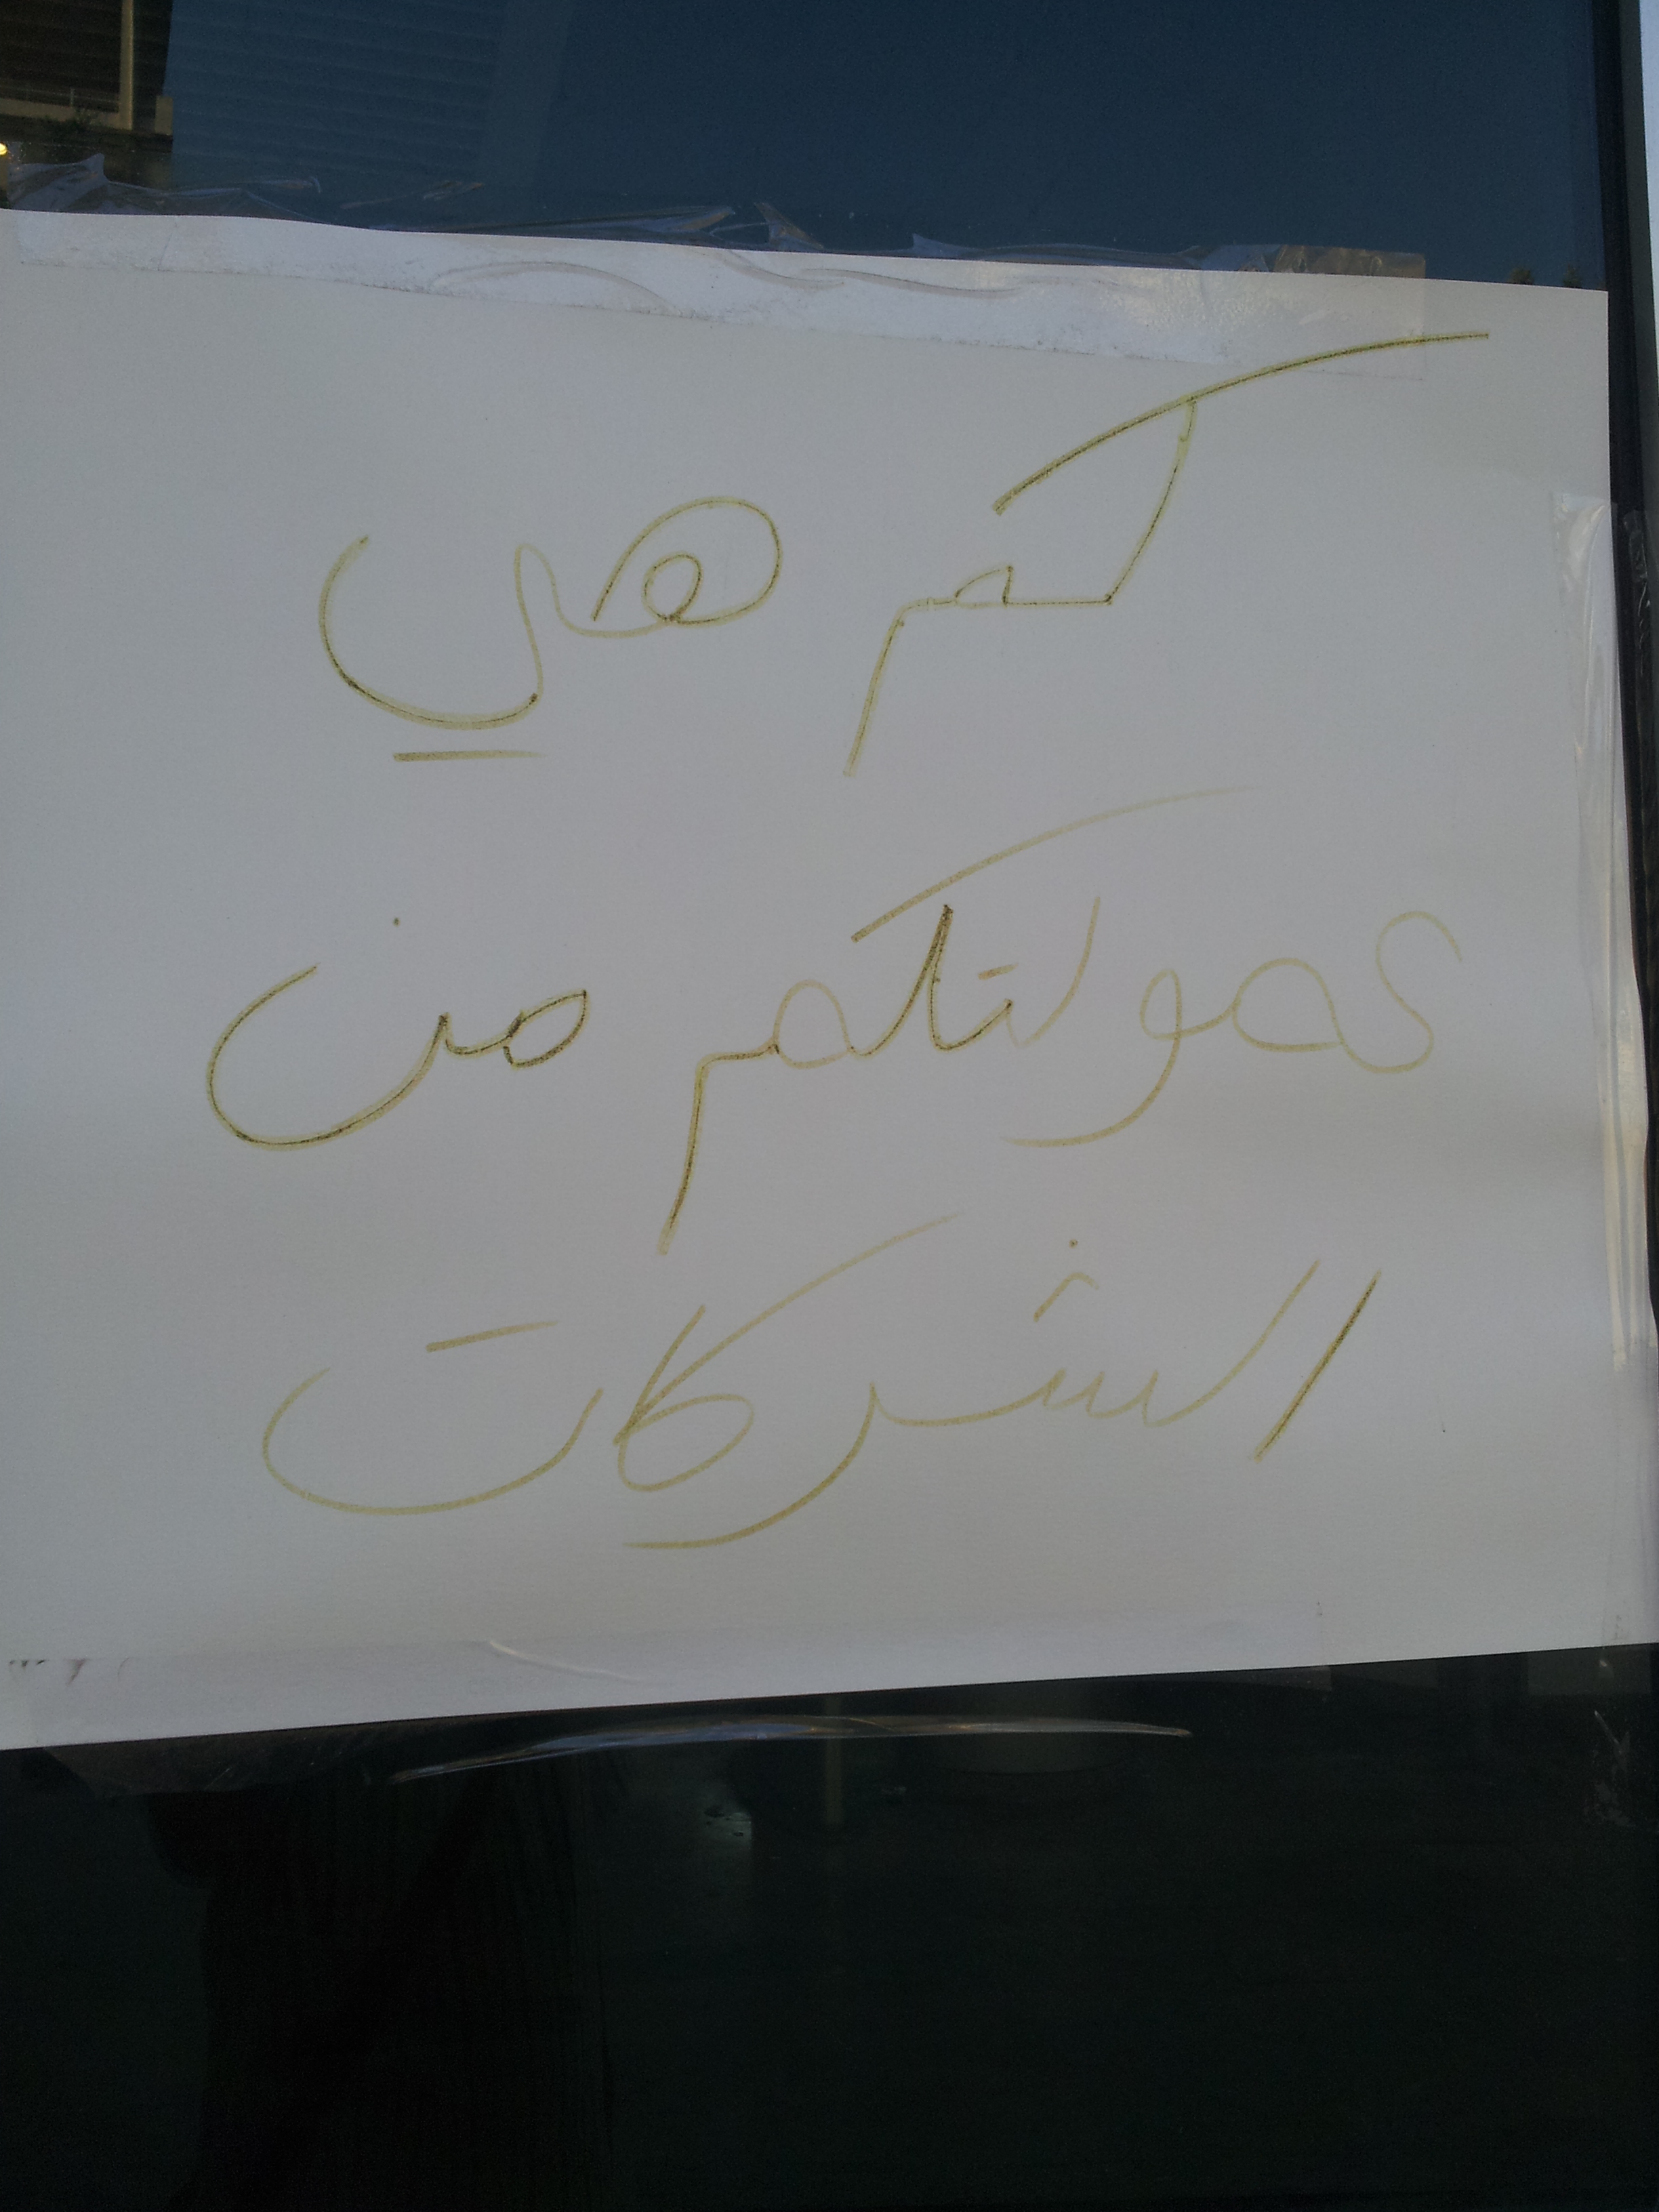 كم هي
عمولتكم من
الشركات